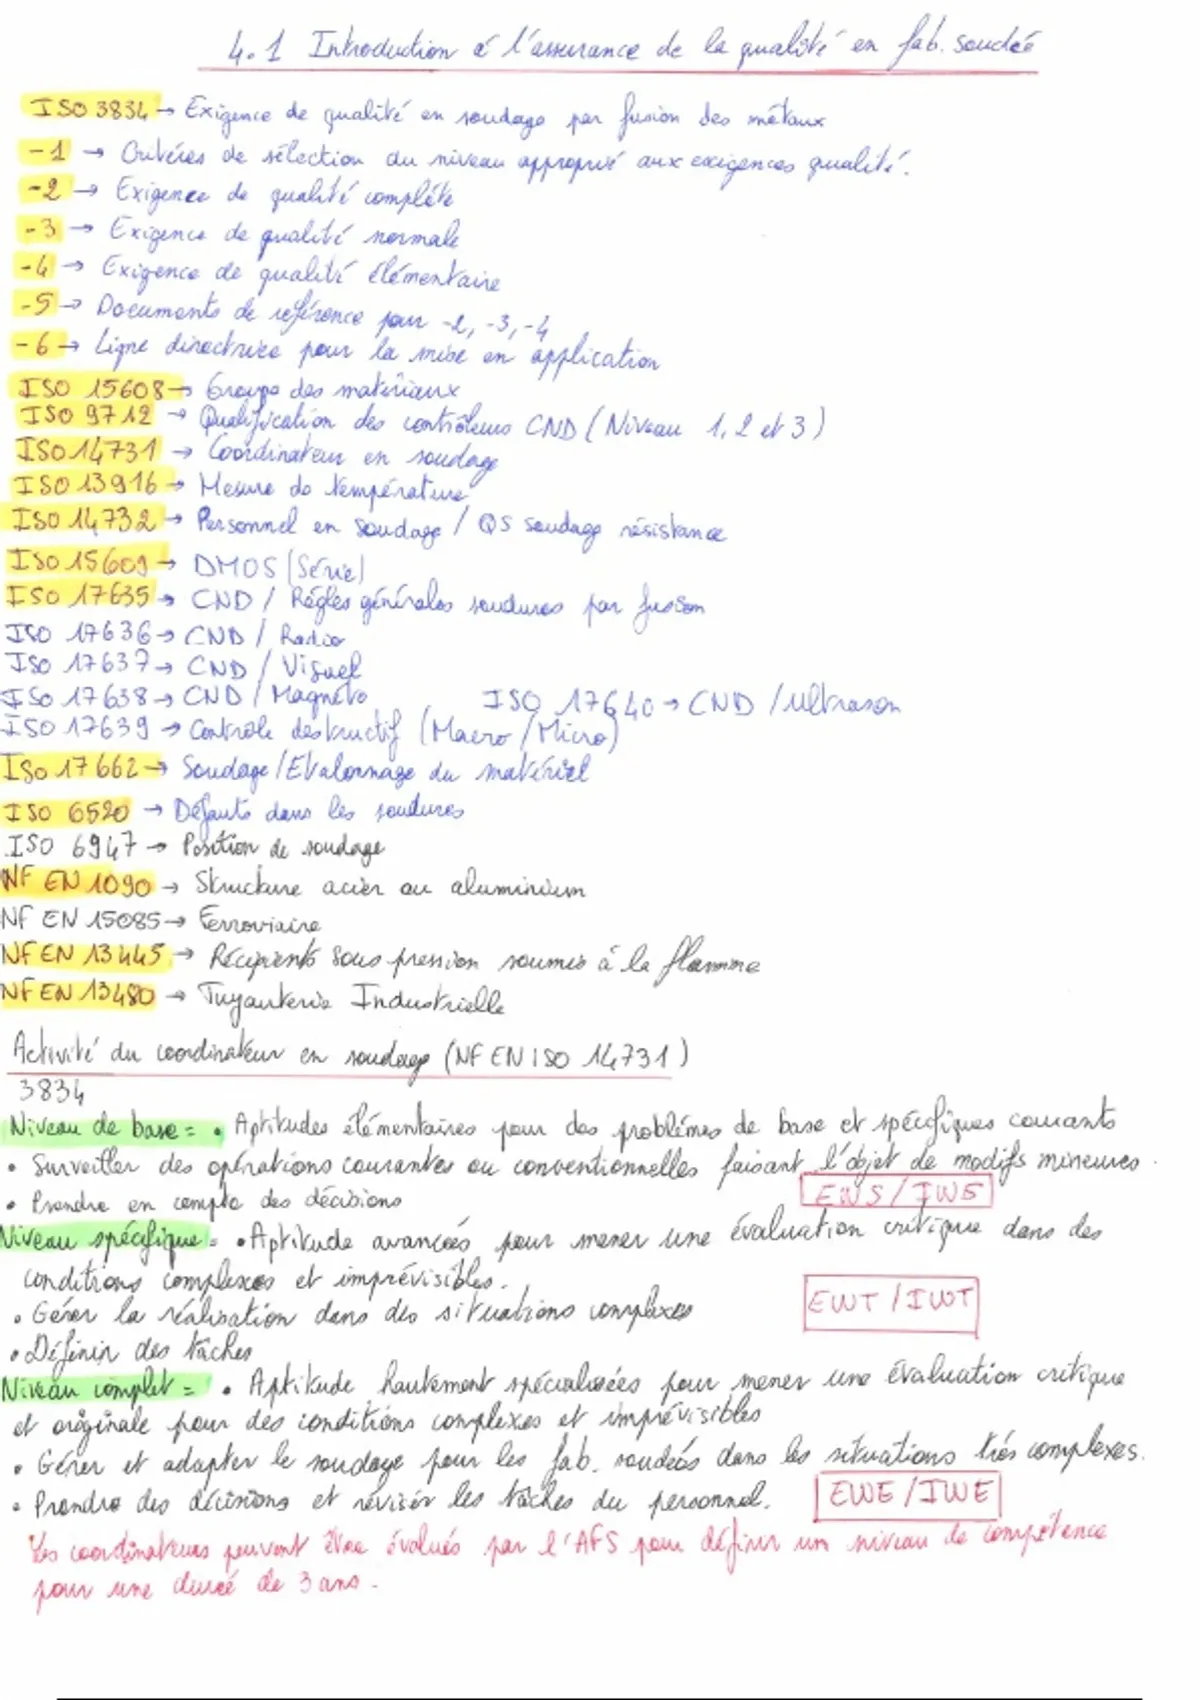 4.1 Introduction à l'assurance de la qualité en fab. soudée
ISO 3834 → Exigence de qualité en soudage par fusion des métaux
-1 → Critères de sélection du niveau approprié aux exigences qualité.
-2 → Exigence de qualité complète
-3 → Exigence de qualité normale
-4 → Exigence de qualité élémentaire
-5 → Documents de référence pour -2, -3, -4
-6 → Ligne directrice pour la mise en application
ISO 15608 → Groupe des matériaux
ISO 9712 → Qualification des contrôleurs CND (Niveau 1, 2 et 3)
ISO 14731 → Coordinateur en soudage
ISO 13916 → Mesure de température
ISO 14732 → Personnel en soudage / QS soudage résistance
ISO 15609 → DMOS (Série)
ISO 17635 → CND / Règles générales soudures par fusion
ISO 17636 → CND / Radio
ISO 17637 → CND / Visuel
ISO 17638 → CND / Magnéto ISO 17640 → CND / Ultrason
ISO 17639 → Contrôle destructif (Macro / Micro)
ISO 17662 → Soudage / Etalonnage du matériel
ISO 6520 → Défauts dans les soudures
ISO 6947 → Position de soudage
NF EN 1090 → Structure acier ou aluminium
NF EN 15085 → Ferroviaire
NF EN 13445 → Récipients sous pression soumis à la flamme
NF EN 13480 → Tuyauterie Industrielle
Activité du coordinateur en soudage (NF EN ISO 14731)
3834
Niveau de base = • Aptitudes élémentaires pour des problèmes de base et spécifiques courants
• Surveiller des opérations courantes ou conventionnelles faisant l'objet de modifs mineures.
• Prendre en compte des décisions EWS / IWS
Niveau spécifique = • Aptitude avancées pour mener une évaluation critique dans des
conditions complexes et imprévisibles.
• Gérer la réalisation dans des situations complexes EWT / IWT
• Définir des tâches
Niveau complet = • Aptitude hautement spécialisées pour mener une évaluation critique
et originale pour des conditions complexes et imprévisibles
• Gérer et adapter le soudage pour les fab. soudées dans les situations très complexes.
• Prendre des décisions et réviser les tâches du personnel. EWE / IWE
Les coordinateurs peuvent être évalués par l'AFS pour définir un niveau de compétence
pour une durée de 3 ans.